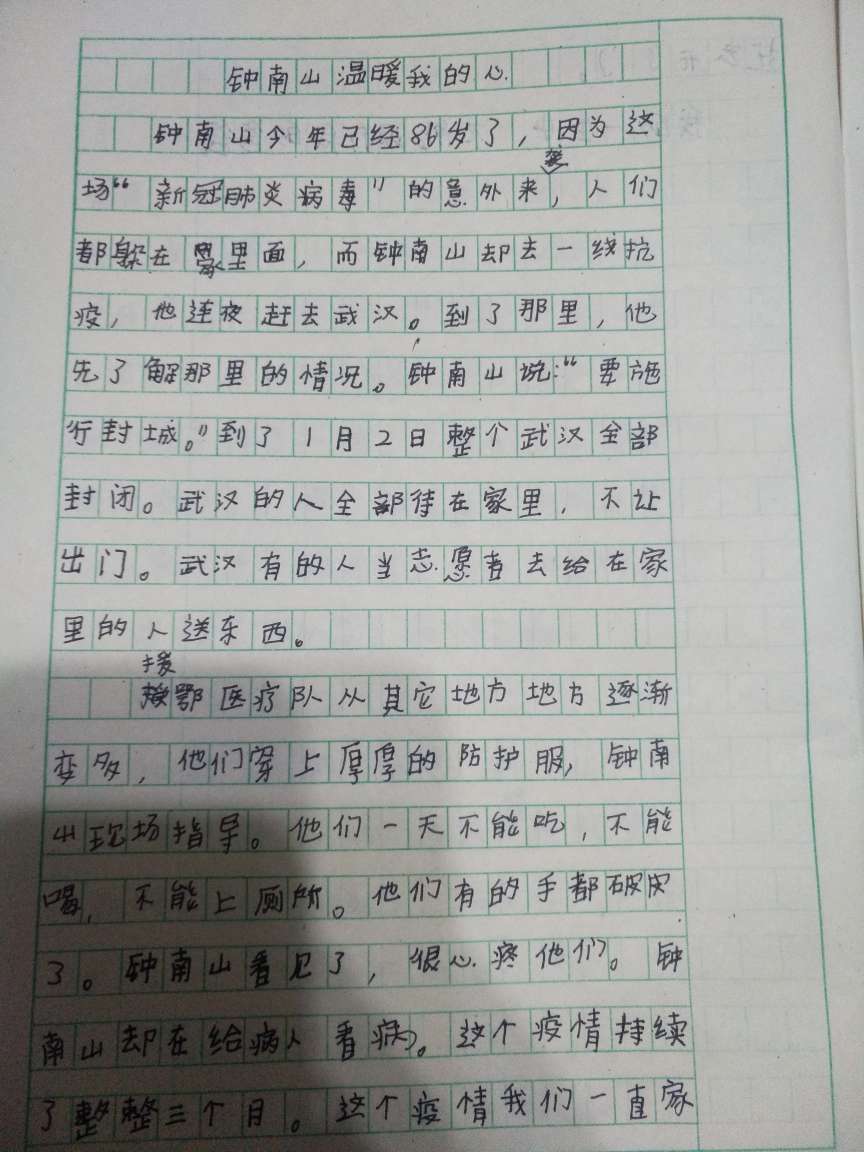 钟南山温暖我的心
钟南山今年已经86岁了，因为这
场“新冠肺炎病毒”的意外袭来，人们
都躲在家里面，而钟南山却去一线抗
疫，他连夜赶去武汉。到了那里，他
先了解那里的情况。钟南山说：“要施
行封城。”到了1月2日整个武汉全部
封闭。武汉的人全部待在家里，不让
出门。武汉有的人当志愿者去给在家
里的人送东西。
援鄂医疗队从其它地方地方逐渐
变多，他们穿上厚厚的防护服，钟南
山现场指导。他们一天不能吃，不能
喝，不能上厕所。他们有的手都破皮
了。钟南山看见了，很心疼他们。钟
南山却在给病人看病。这个疫情持续
了整整三个月。这个疫情我们一直家